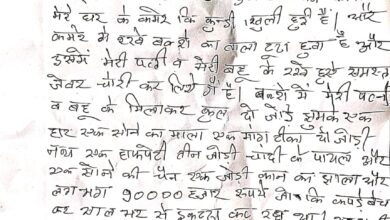 मेरे घर के कमरे कि कुन्डी खुली हुई हैं। और
कमरे मे रखे बक्शे का ताला टूटा हुवा है और
उसमें मेरी पत्नी व मेरी बहू के रखे हुये समस्त
जेवर चोरी कर लिये गै है। बक्शे में मेरी पत्नी
व बहू के मिलाकर कुल दो जोडी झुमके एक
हार एक सोने का माला एक मांग टीका दो जोडी
नथ एक हाफपेटी तीन जोडी चांदी के पायल और
एक सोने की चैन एक जोडी कान का झाला और
लगभग 90000 हजार रूपये जो कि कपडे बेच
कर साल भर से इकटठा कर रखा था।